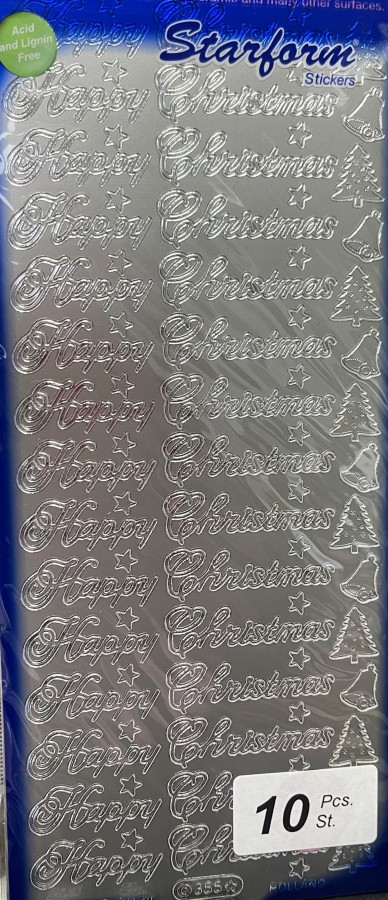 and many other surfaces.
Acid
and Lignin
Free
Starform
Stickers
Happy Christmas
Happy Christmas
Happy Christmas
Happy Christmas
Happy Christmas
Happy Christmas
Happy Christmas
Happy Christmas
Happy Christmas
Happy Christmas
Happy Christmas
Happy Christmas
Happy Ch
Happy Ch
10 Pcs.
St.
355
HOLLAND